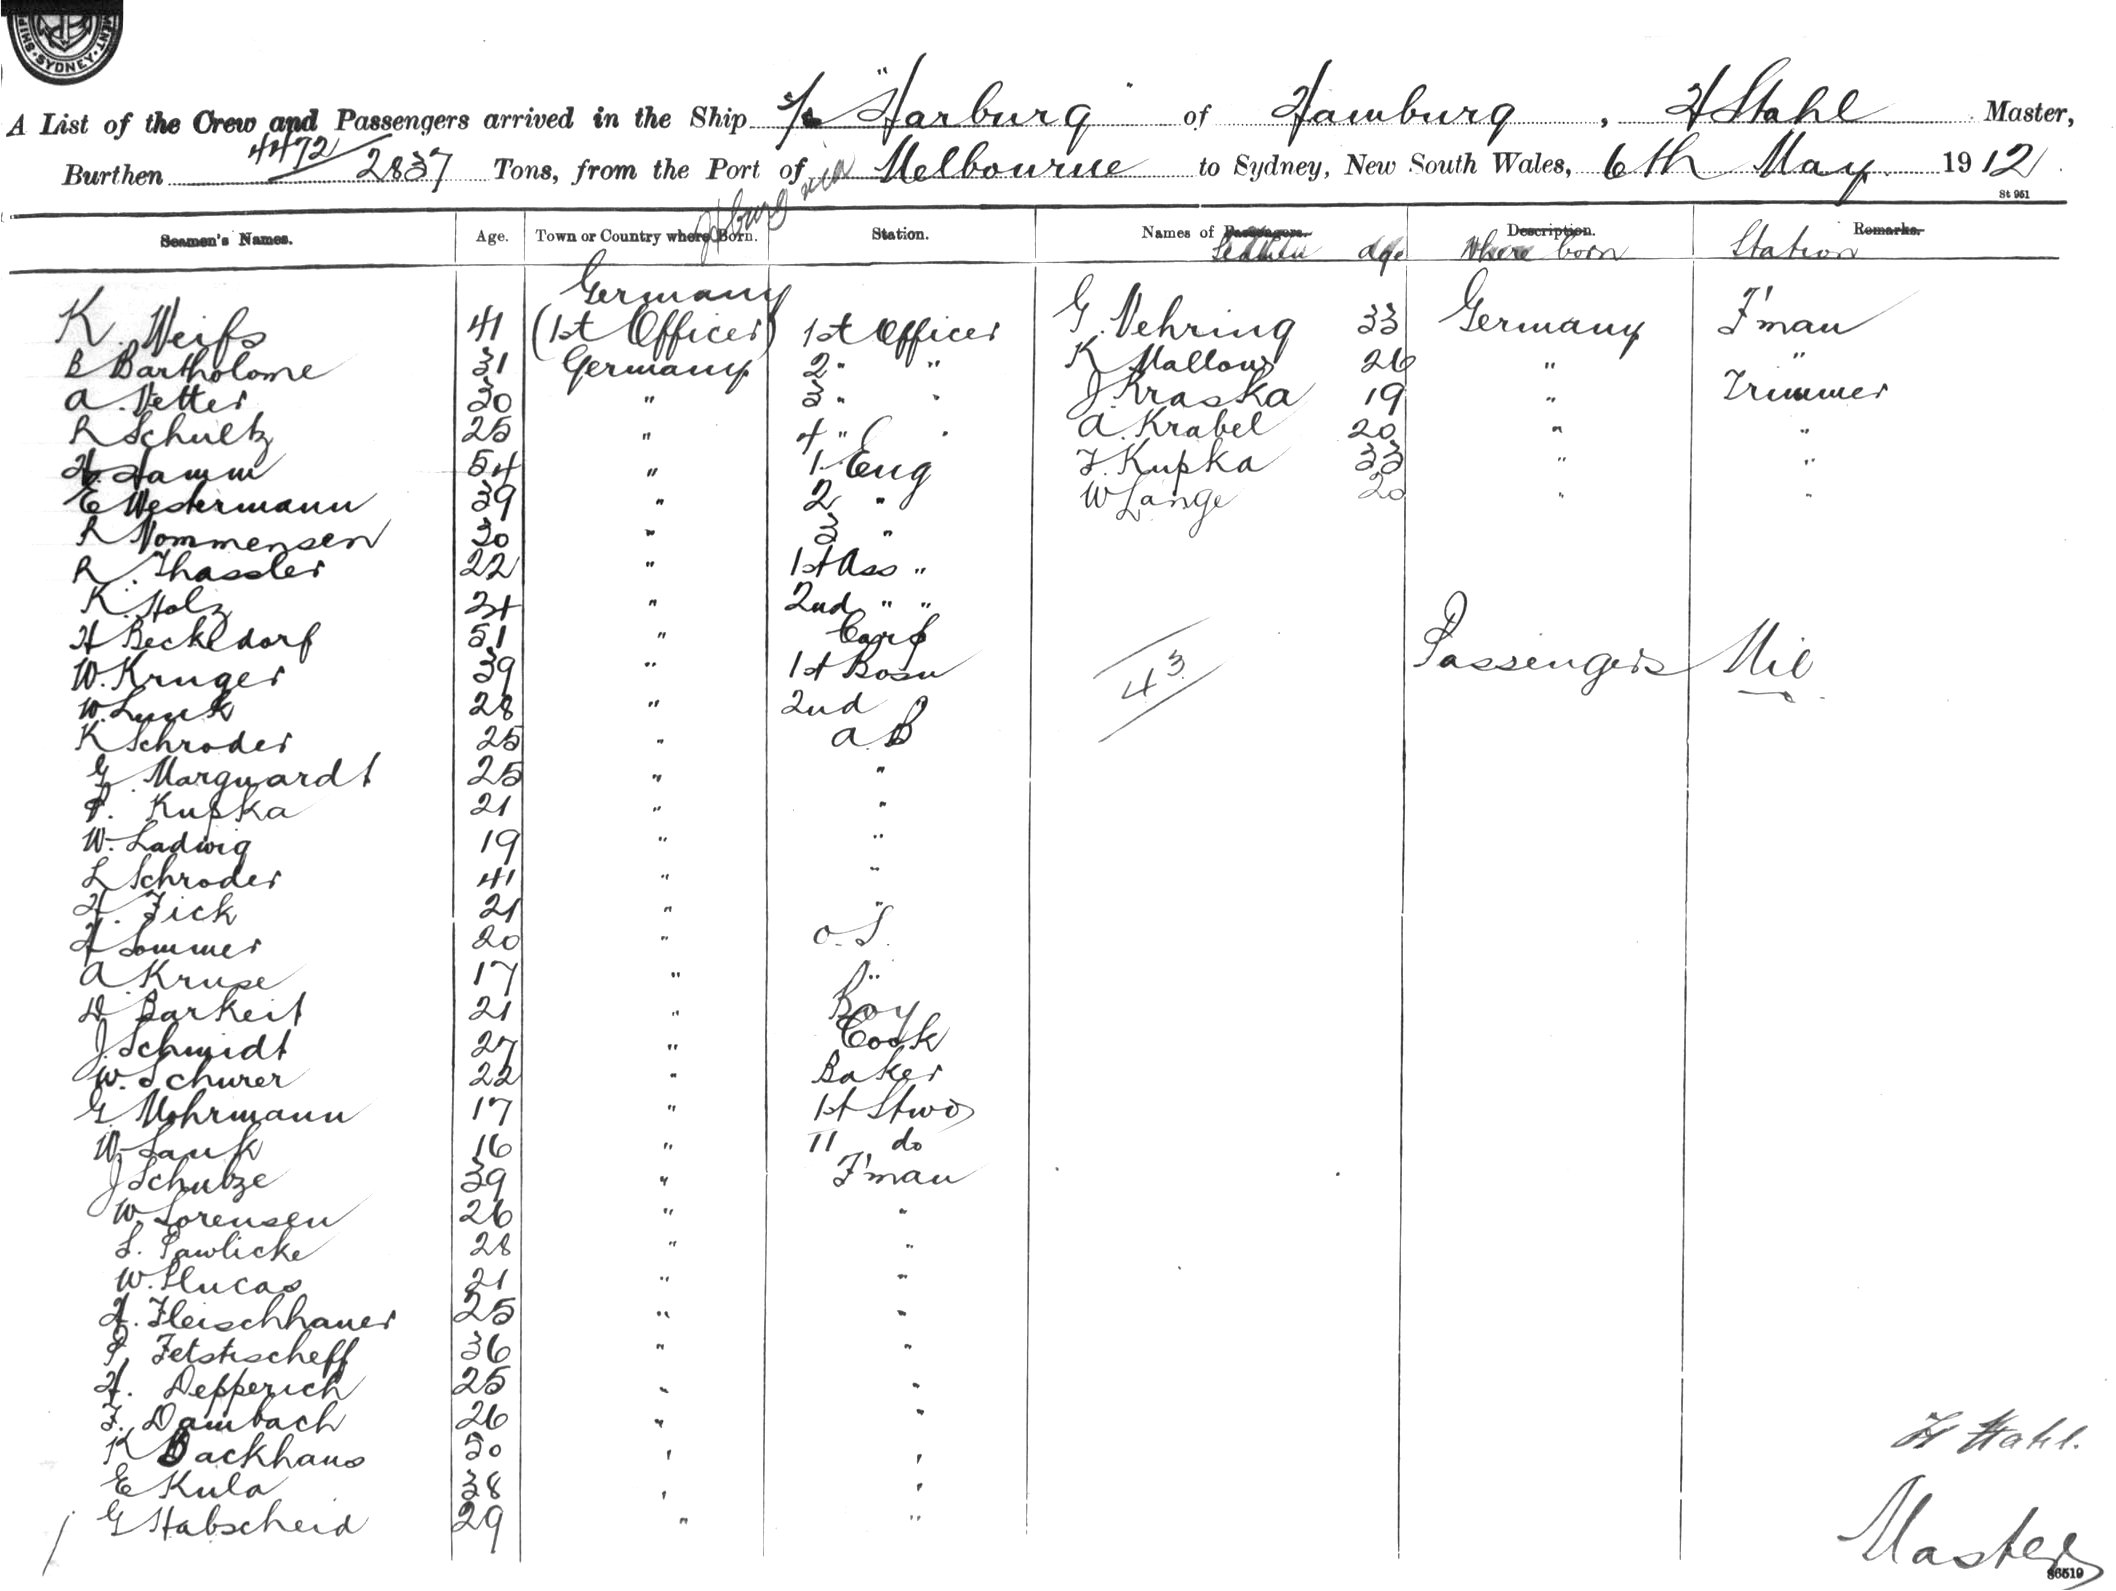 SYDNEY
A List of the Crew and Passengers arrived in the Ship S/s "Harburg" of Hamburg, H Stahl Master,
Burthen 4472/2837 Tons, from the Port of Hburg via Melbourne to Sydney, New South Wales, 6th May 1912
St 951
Seamen's Names. Age. Town or Country where Born. Station. Names of Passengers. Description. Remarks.
Seamen Age Where born Station
Germany
K. Weifs 41 (1st Officer) 1st Officer G. Nehring 33 Germany F'man
B Bartholome 31 Germany 2 " " K Mallow 26 " "
A. Vetter 30 " 3 " " J. Kraska 19 " Trimmer
R Schultz 25 " 4 " " A. Krabel 20 " "
H. Hamm 54 " 1. Eng F. Kupka 33 " "
E Westermann 39 " 2 " W Lange 20 " "
R Nommensen 30 " 3 "
R. Thassler 22 " 1st Ass "
K. Holz 24 " 2nd " "
H Beckeldorf 51 " Carp
W. Kruger 39 " 1st Bosn 43 Passengers Nil
W. Lunk 28 " 2nd
K Schroder 25 " A B
G. Marquardt 25 " "
P. Kupka 21 " "
W. Ladwig 19 " "
L Schroder 41 " "
H. Fick 21 " "
H Sommer 20 " O. S.
A. Kruse 17 " "
D Barkeit 21 " Boy
J. Schmidt 27 " Cook
W. Schurer 22 " Baker
G. Mohrmann 17 " 1st Stwd
W. Lauk 16 " II do
J Schulze 39 " F'man
W. Sorensen 26 " "
S. Pawlicke 28 " "
W. Slucas 21 " "
H. Fleischhauer 25 " "
P. Fetstscheff 36 " "
H. Depperich 25 " "
F. Dambach 26 " "
K Backhaus 30 " "
H Stahl.
E Kula 38 " "
G Habscheid 29 " "
Master
86519